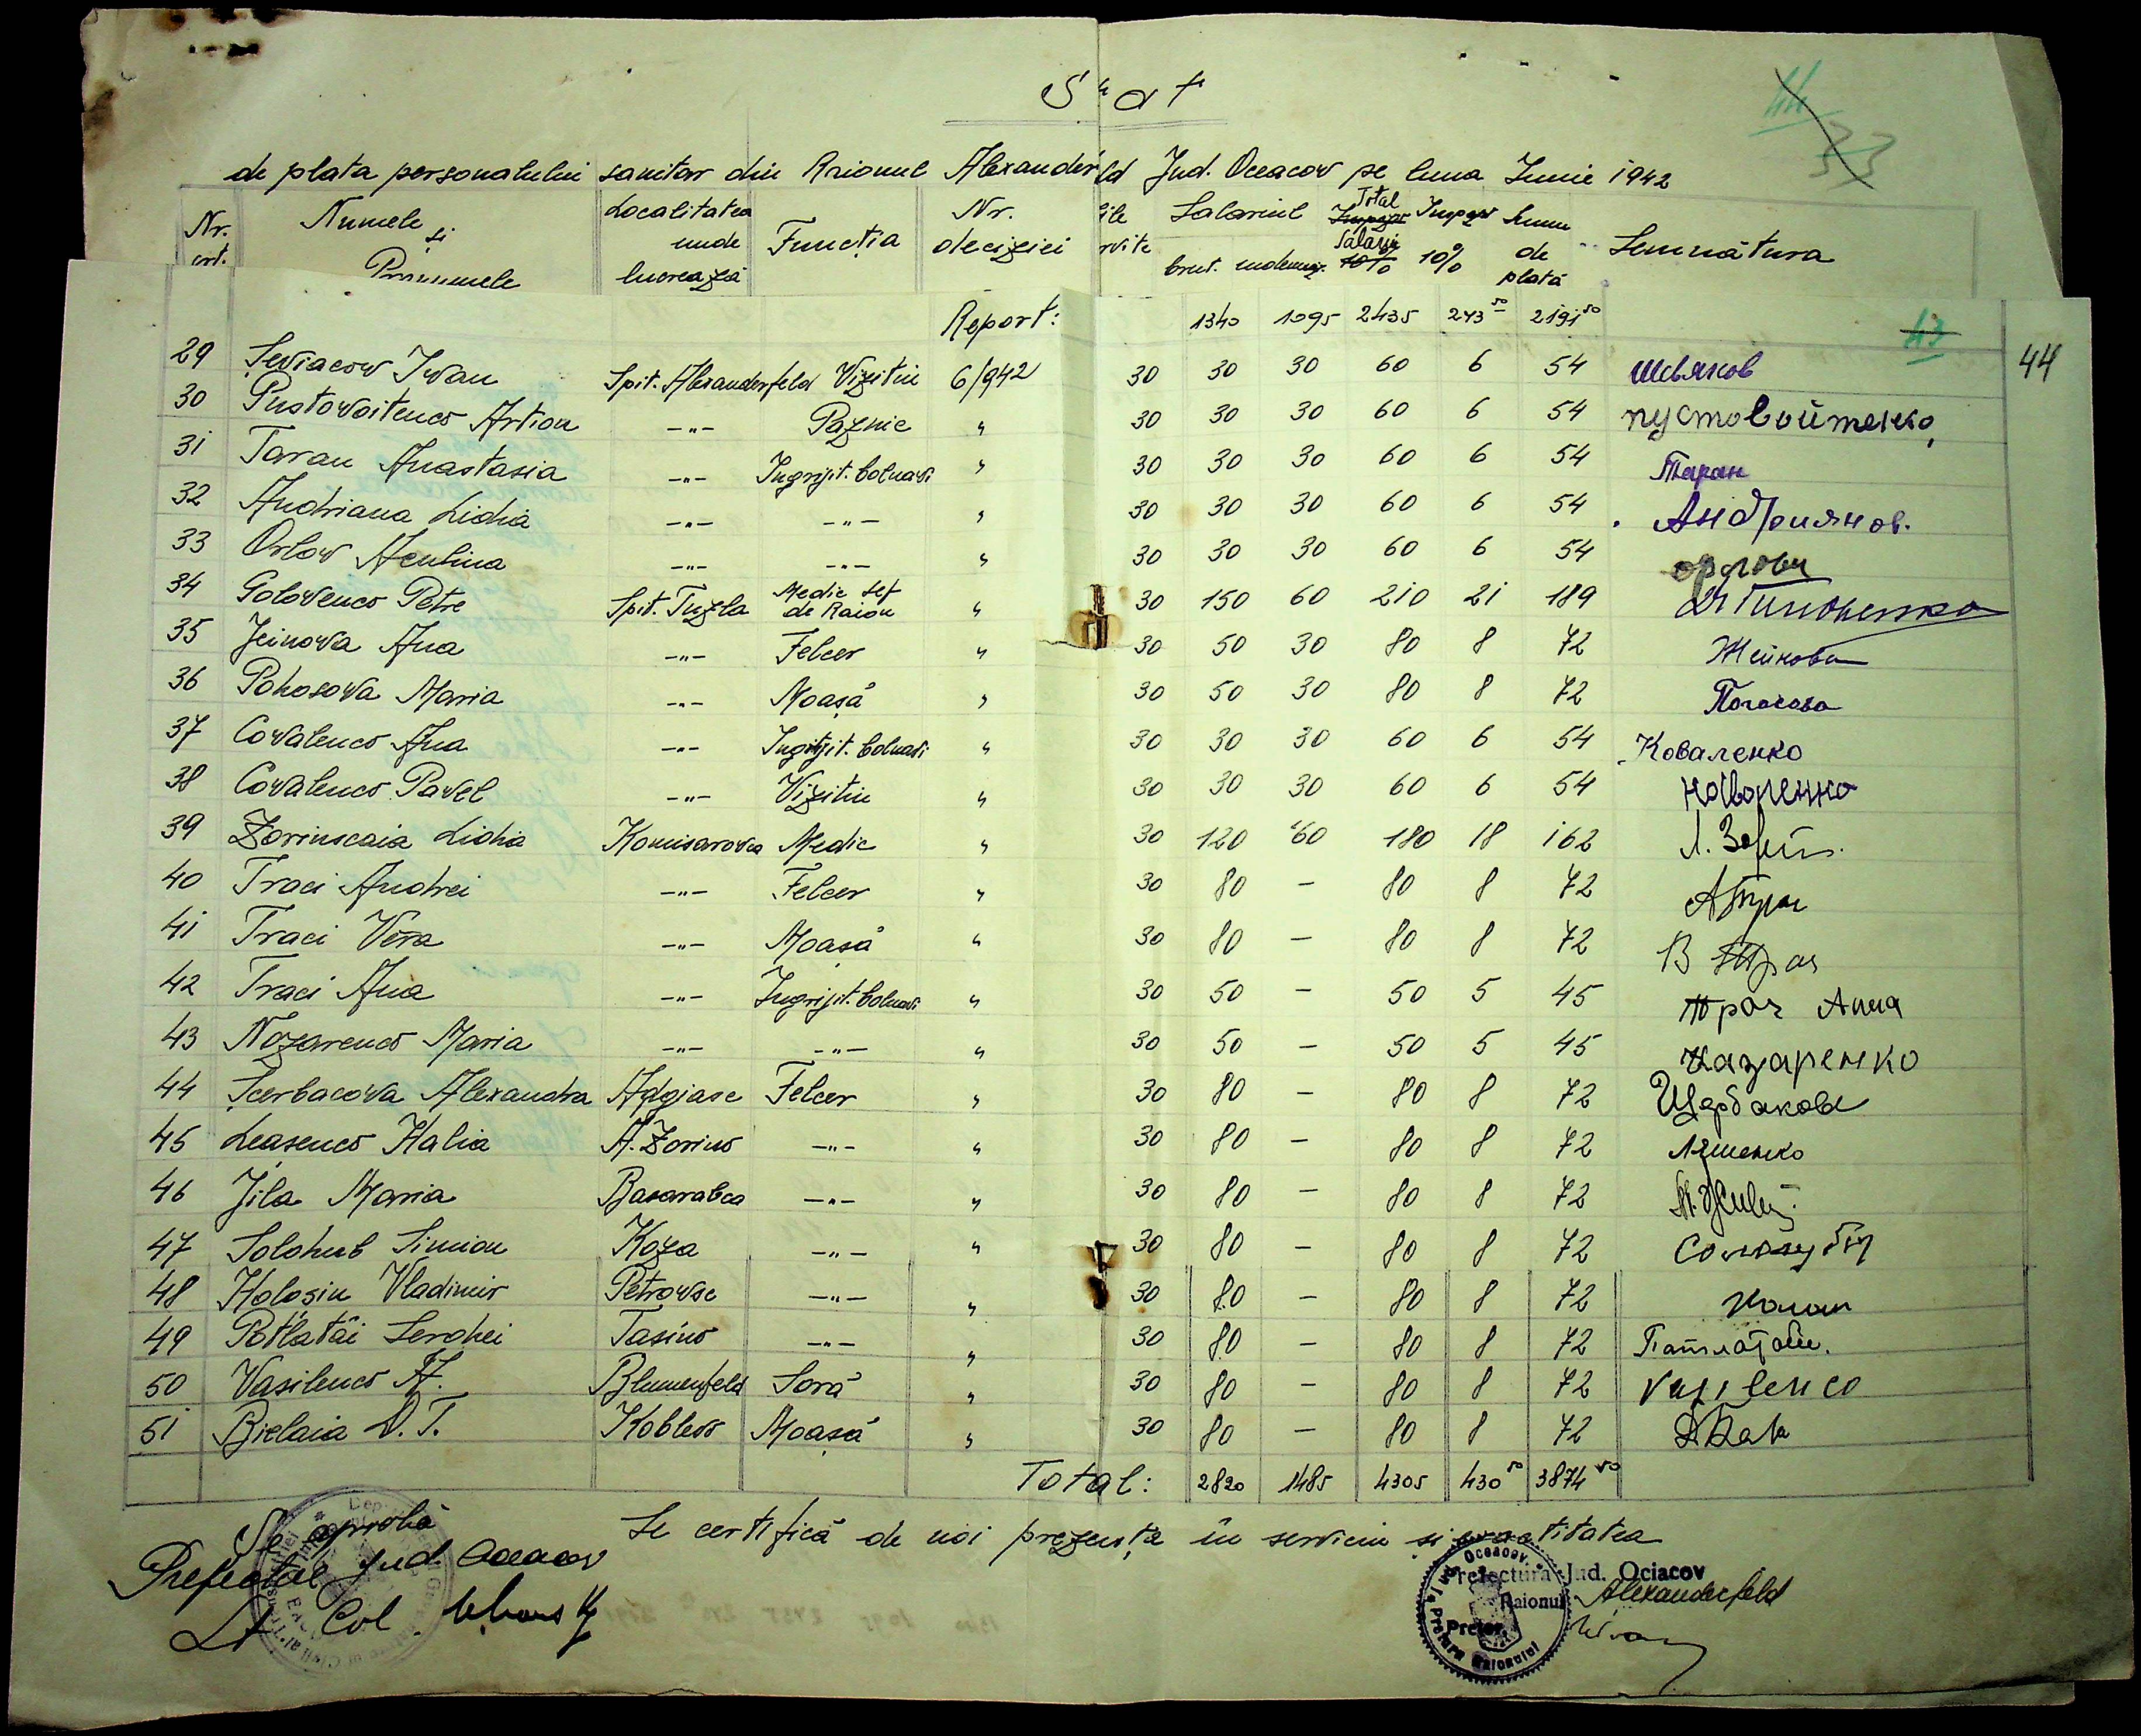 44
33
Stat
de plata personalului sanitar din Raionul Alexanderfeld Jud. Oceacow pe luna Iunie 1942
Nr. crt. Numele si Pronumele Localitatea unde lucrează Funcția Nr. deciziei ile rvite Salariul brut. indemniz. Total Salarii Impoz. 10% Suma de plată Semnătura
Report: 1340 1095 2435 243 50 2191 50 43
44
29 Șewiacow Iwan Spit. Alexanderfeld Vizitiu 6/942 30 30 30 60 6 54 Шевяков
30 Pustowoitenco Artion -„- Paznic „ 30 30 30 60 6 54 пустовойтенко
31 Taran Anastasia -„- Ingrijit. bolnavi „ 30 30 30 60 6 54 Таран
32 Andriana Lidia -„- -„- „ 30 30 30 60 6 54 Андриянов.
33 Orlow Aculina -„- -„- „ 30 30 30 60 6 54 орлова
34 Golovenco Petre Spit. Tuzla Medic Șef de Raion „ 30 150 60 210 21 189
35 Jeinowa Ana -„- Felcer „ 30 50 30 80 8 72 Жейнова
36 Pohosowa Maria -„- Moașă „ 30 50 30 80 8 72 Погосова
37 Covalenco Ana -„- Ingrijit. bolnavi „ 30 30 30 60 6 54 Коваленко
38 Covalenco Pavel -„- Vizitiu „ 30 30 30 60 6 54 коваленко
39 Zorinscaia Lidia Komisarowca Medic „ 30 120 60 180 18 162
40 Traci Andrei -„- Felcer „ 30 80 - 80 8 72 А Трач
41 Traci Vera -„- Moașă „ 30 80 - 80 8 72 В Трач
42 Traci Ana -„- Ingrijit. bolnavi „ 30 50 - 50 5 45 Трач Анна
43 Nazarenco Maria -„- -„- „ 30 50 - 50 5 45 Назаренко
44 Șcerbacowa Alexandra Adgiasc Felcer „ 30 80 - 80 8 72 Щербакова
45 Leasenco Halia A. Zorino -„- „ 30 80 - 80 8 72 Ляшенко
46 Jila Maria Basarabca -„- „ 30 80 - 80 8 72
47 Solohub Simion Koza -„- „ 30 80 - 80 8 72 Сологуб
48 Holosin Vladimir Petrowsc -„- „ 30 80 - 80 8 72
49 Potlatâi Serghei Tasino -„- „ 30 80 - 80 8 72 Патлатай.
50 Vasilenco A. Blumenfeld Soră „ 30 80 - 80 8 72 Vasilenco
51 Bielaia D. T. Koblevo Moașă „ 30 80 - 80 8 72
Total: 2820 1485 4305 430 50 3874 50
Se certifică de noi prezența în serviciu și exactitatea
Se aprobă
Prefectul jud. Oceacov
Lt Col.
Prefectura Jud. Ociacov
Raionul Alexanderfeld
Pretor,